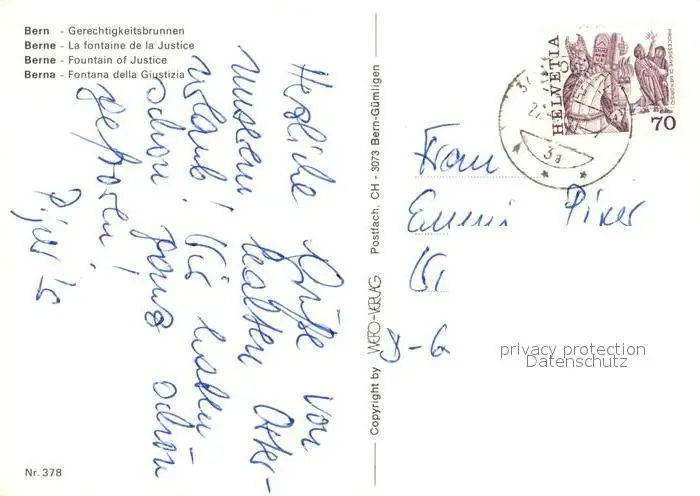 Bern - Gerechtigkeitsbrunnen
Berne - La fontaine de la Justice
Berne - Fountain of Justice
Berna - Fontana della Giustizia
Herzliche Grüße von
unserem kalten Oster-
urlaub! Wir haben
schon ganz schön
gefroren!
Nr. 378
Copyright by WERO-VERLAG Postfach, CH - 3073 Bern-Gümligen
HELVETIA
70
3a
Frau
Emmi
D-6
privacy protection
Datenschutz